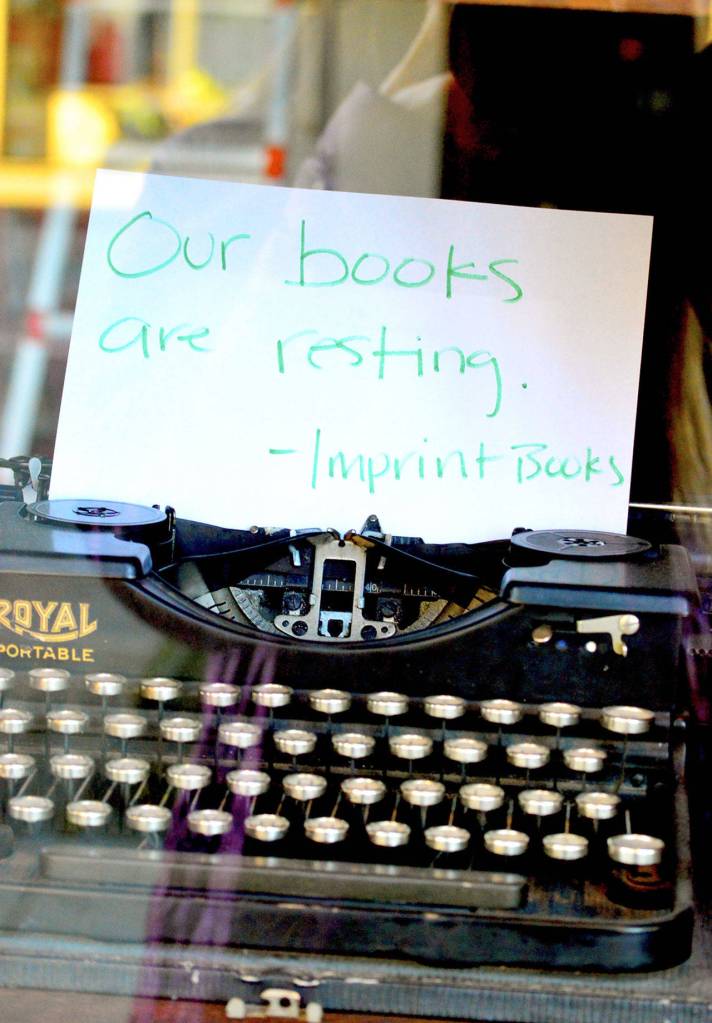 Our books
are resting.
-Imprint Books
ROYAL
PORTABLE